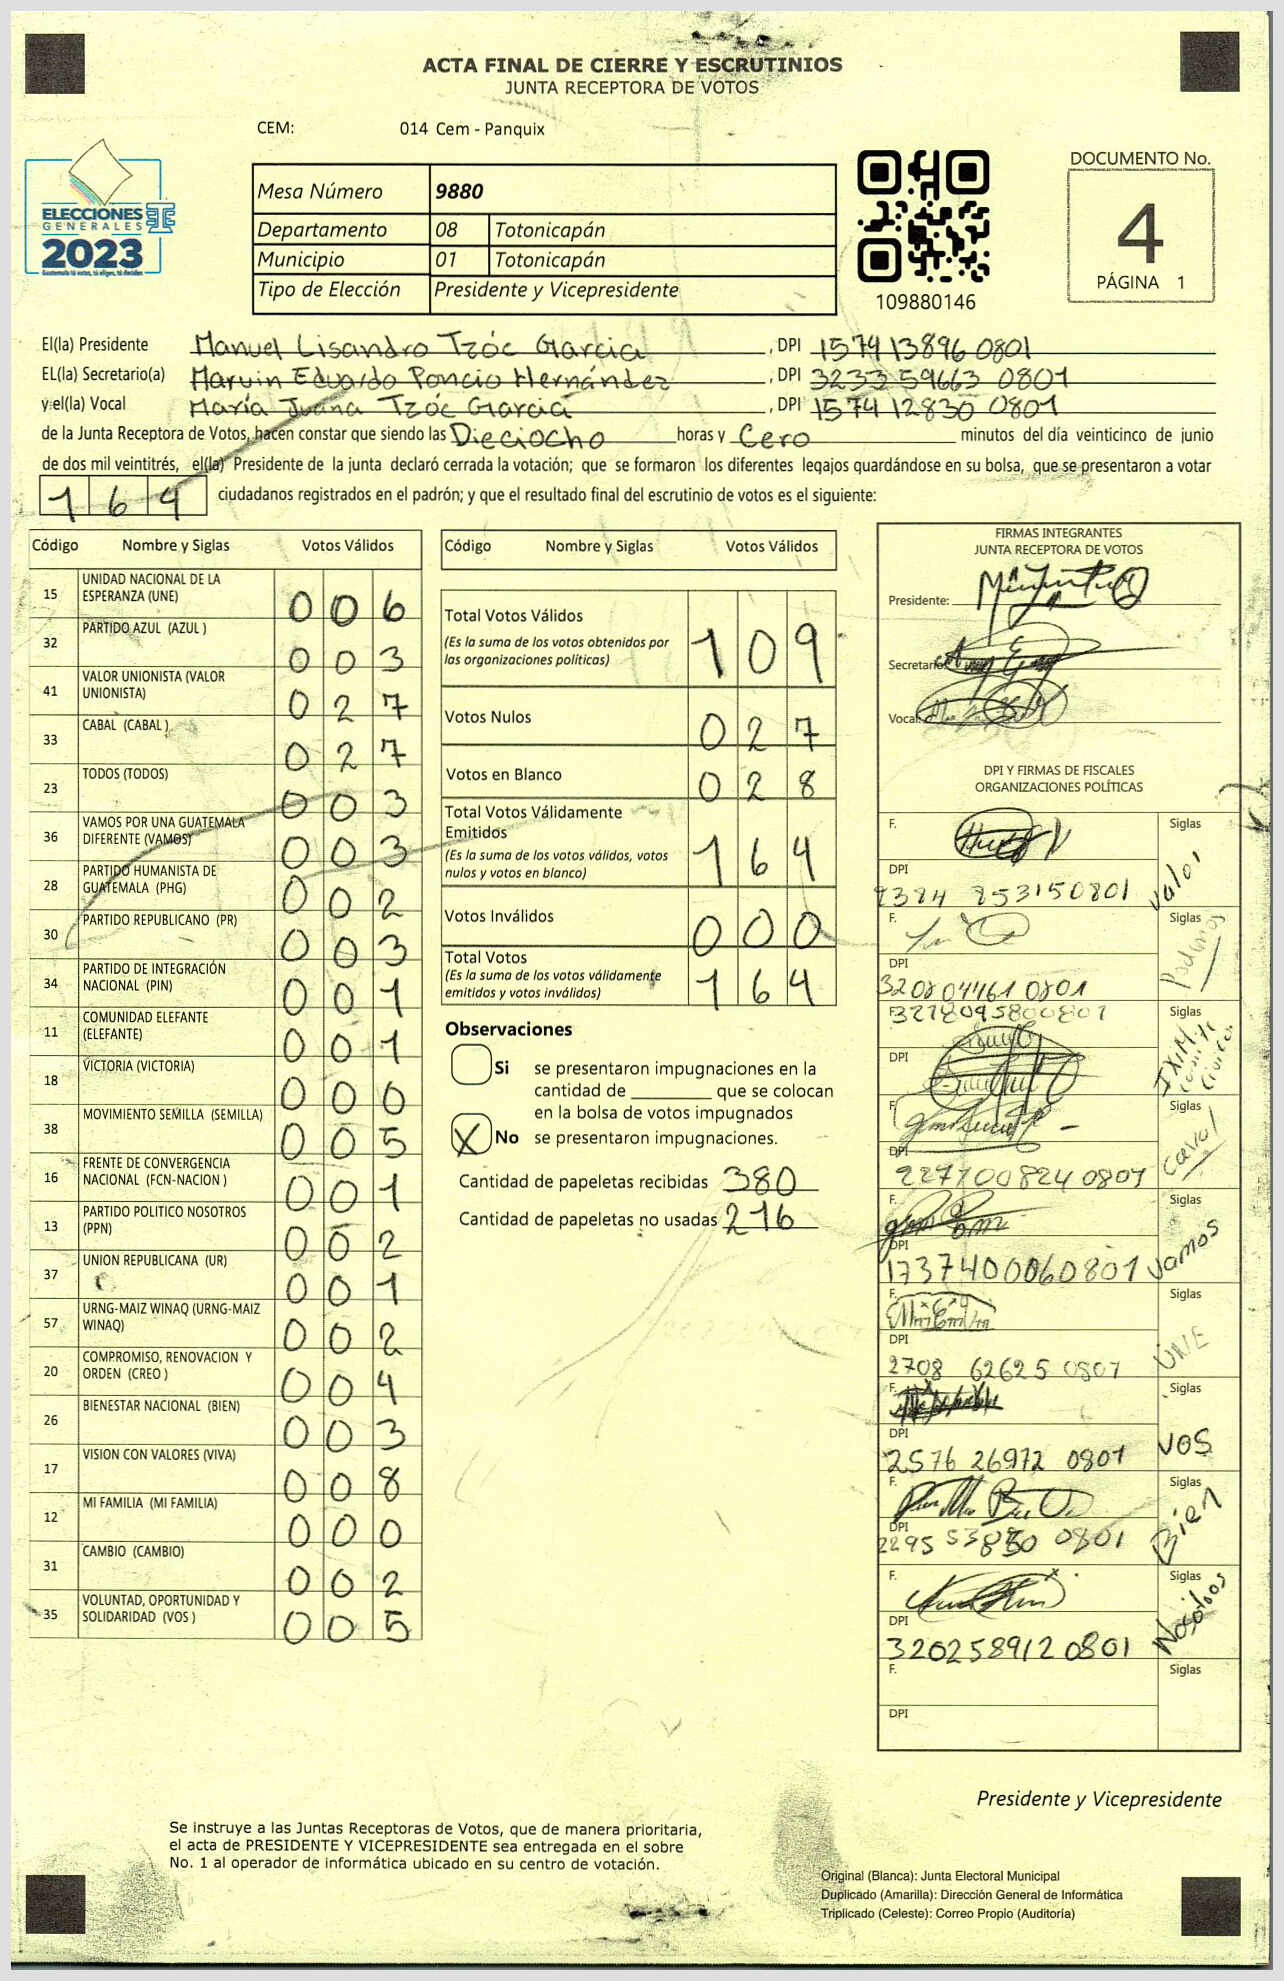 ACTA FINAL DE CIERRE Y ESCRUTINIOS
JUNTA RECEPTORA DE VOTOS
CEM: 014 Cem - Panquix
ELECCIONES
GENERALES
2023
Guatemala tú votas, tú eliges, tú decides
Mesa Número 9880
Departamento 08 Totonicapán
Municipio 01 Totonicapán
Tipo de Elección Presidente y Vicepresidente
109880146
DOCUMENTO No.
4
PÁGINA 1
El(la) Presidente Manuel Lisandro Tzóc Garcia, DPI 1574 13896 0801
EL(la) Secretario(a) Marvin Eduardo Poncio Hernández, DPI 3233 59663 0801
y el(la) Vocal María Juana Tzóc Garcia, DPI 1574 12830 0801
de la Junta Receptora de Votos, hacen constar que siendo las Dieciocho horas y Cero minutos del día veinticinco de junio
de dos mil veintitrés, el(la) Presidente de la junta declaró cerrada la votación; que se formaron los diferentes legajos guardándose en su bolsa, que se presentaron a votar
164 ciudadanos registrados en el padrón; y que el resultado final del escrutinio de votos es el siguiente:
Código Nombre y Siglas Votos Válidos
15 UNIDAD NACIONAL DE LA ESPERANZA (UNE) 006
32 PARTIDO AZUL (AZUL ) 003
41 VALOR UNIONISTA (VALOR UNIONISTA) 027
33 CABAL (CABAL ) 027
23 TODOS (TODOS) 003
36 VAMOS POR UNA GUATEMALA DIFERENTE (VAMOS) 003
28 PARTIDO HUMANISTA DE GUATEMALA (PHG) 002
30 PARTIDO REPUBLICANO (PR) 003
34 PARTIDO DE INTEGRACIÓN NACIONAL (PIN) 001
11 COMUNIDAD ELEFANTE (ELEFANTE) 001
18 VICTORIA (VICTORIA) 000
38 MOVIMIENTO SEMILLA (SEMILLA) 005
16 FRENTE DE CONVERGENCIA NACIONAL (FCN-NACION ) 001
13 PARTIDO POLITICO NOSOTROS (PPN) 002
37 UNION REPUBLICANA (UR) 001
57 URNG-MAIZ WINAQ (URNG-MAIZ WINAQ) 002
20 COMPROMISO, RENOVACION Y ORDEN (CREO ) 004
26 BIENESTAR NACIONAL (BIEN) 003
17 VISION CON VALORES (VIVA) 008
12 MI FAMILIA (MI FAMILIA) 000
31 CAMBIO (CAMBIO) 002
35 VOLUNTAD, OPORTUNIDAD Y SOLIDARIDAD (VOS ) 005
Código Nombre y Siglas Votos Válidos
Total Votos Válidos 109
(Es la suma de los votos obtenidos por
las organizaciones políticas)
Votos Nulos 027
Votos en Blanco 028
Total Votos Válidamente
Emitidos 164
(Es la suma de los votos válidos, votos
nulos y votos en blanco)
Votos Inválidos 000
Total Votos 164
(Es la suma de los votos válidamente
emitidos y votos inválidos)
Observaciones
Si se presentaron impugnaciones en la
cantidad de ________ que se colocan
en la bolsa de votos impugnados
X No se presentaron impugnaciones.
Cantidad de papeletas recibidas 380
Cantidad de papeletas no usadas 216
FIRMAS INTEGRANTES
JUNTA RECEPTORA DE VOTOS
Presidente:
Secretario:
Vocal:
DPI Y FIRMAS DE FISCALES
ORGANIZACIONES POLÍTICAS
F. Siglas valor
DPI 9384 85315 0801
F. Siglas Podemos
DPI 3208 04461 0801
F. 3218095800801 Siglas
DPI
F. Siglas Caval
DPI 2271008240801
F. Siglas Vamos
DPI 1737400060801
F. Siglas UNE
DPI 2708 62625 0801
F. Siglas VOS
DPI 2576 26972 0801
F. Siglas Bien
DPI 2295 53830 0801
F. Siglas Nosotros
DPI 3202589120801
F. Siglas
DPI
Presidente y Vicepresidente
Se instruye a las Juntas Receptoras de Votos, que de manera prioritaria,
el acta de PRESIDENTE Y VICEPRESIDENTE sea entregada en el sobre
No. 1 al operador de informática ubicado en su centro de votación.
Original (Blanca): Junta Electoral Municipal
Duplicado (Amarilla): Dirección General de Informática
Triplicado (Celeste): Correo Propio (Auditoría)